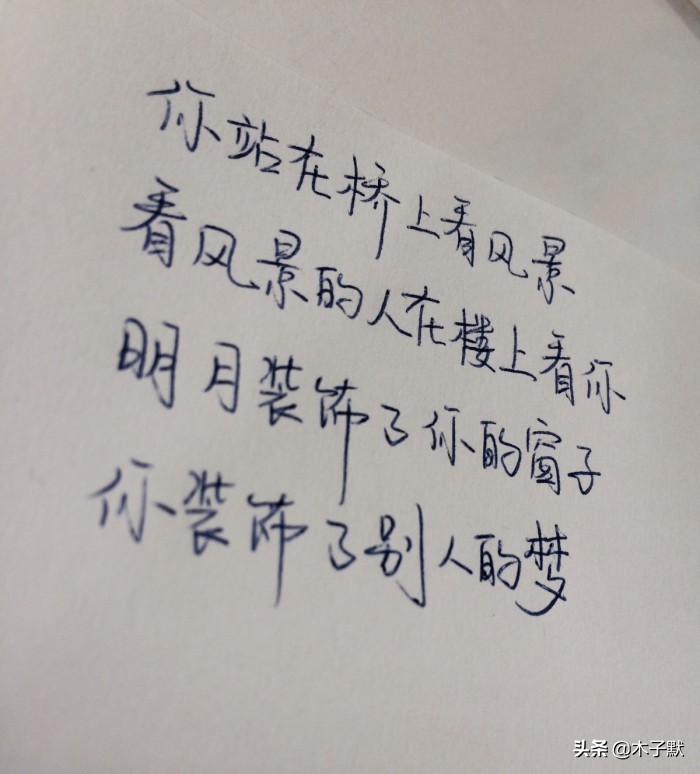 你站在桥上看风景
看风景的人在楼上看你
明月装饰了你的窗子
你装饰了别人的梦
头条 @木子默